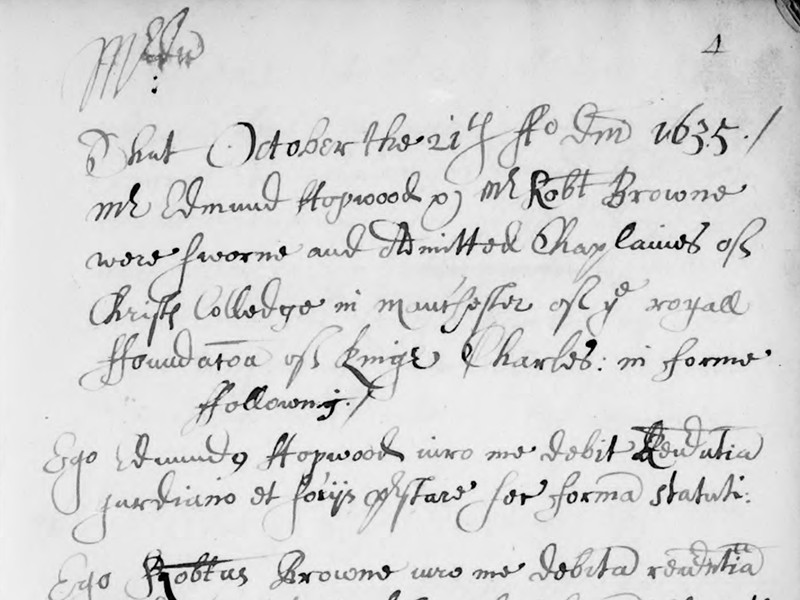 4
That October the 21th Ao Dm 1635./
Mr Edmund Hopwood & Mr Robt Browne
were sworne and Admitted Chaplaines of
Christs Colledge in Manchester of ye royall
ffoundacon of Kinge Charles: in forme
ffollowing./
Ego Edmundus Hopwood iuro me debit
gardiano et socijs prstare sec formā statuti:
Ego Robtus Browne iuro me debitā